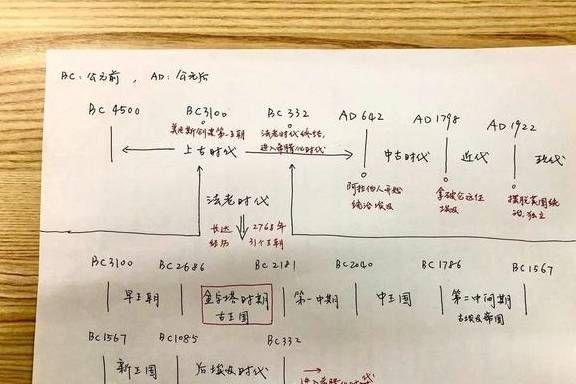 BC:公元前 , AD:公元后
BC 4500 BC3100 BC 332 AD 642 AD 1798 AD 1922
美尼斯创建第一王朝 法老时代终结,
进入希腊化时代
上古时代 中古时代 近代 现代
阿拉伯人开始
统治埃及
拿破仑远征
埃及
摆脱英国统
治,独立
法老时代
长达 2768年
经历 31个王朝
BC3100 BC2686 BC2181 BC2040 BC1786 BC1567
早王朝 金字塔时期 第一中期 中王国 第二中间期
古王国 古埃及帝国
BC1567 BC1085 BC332
新王国 后埃及时代